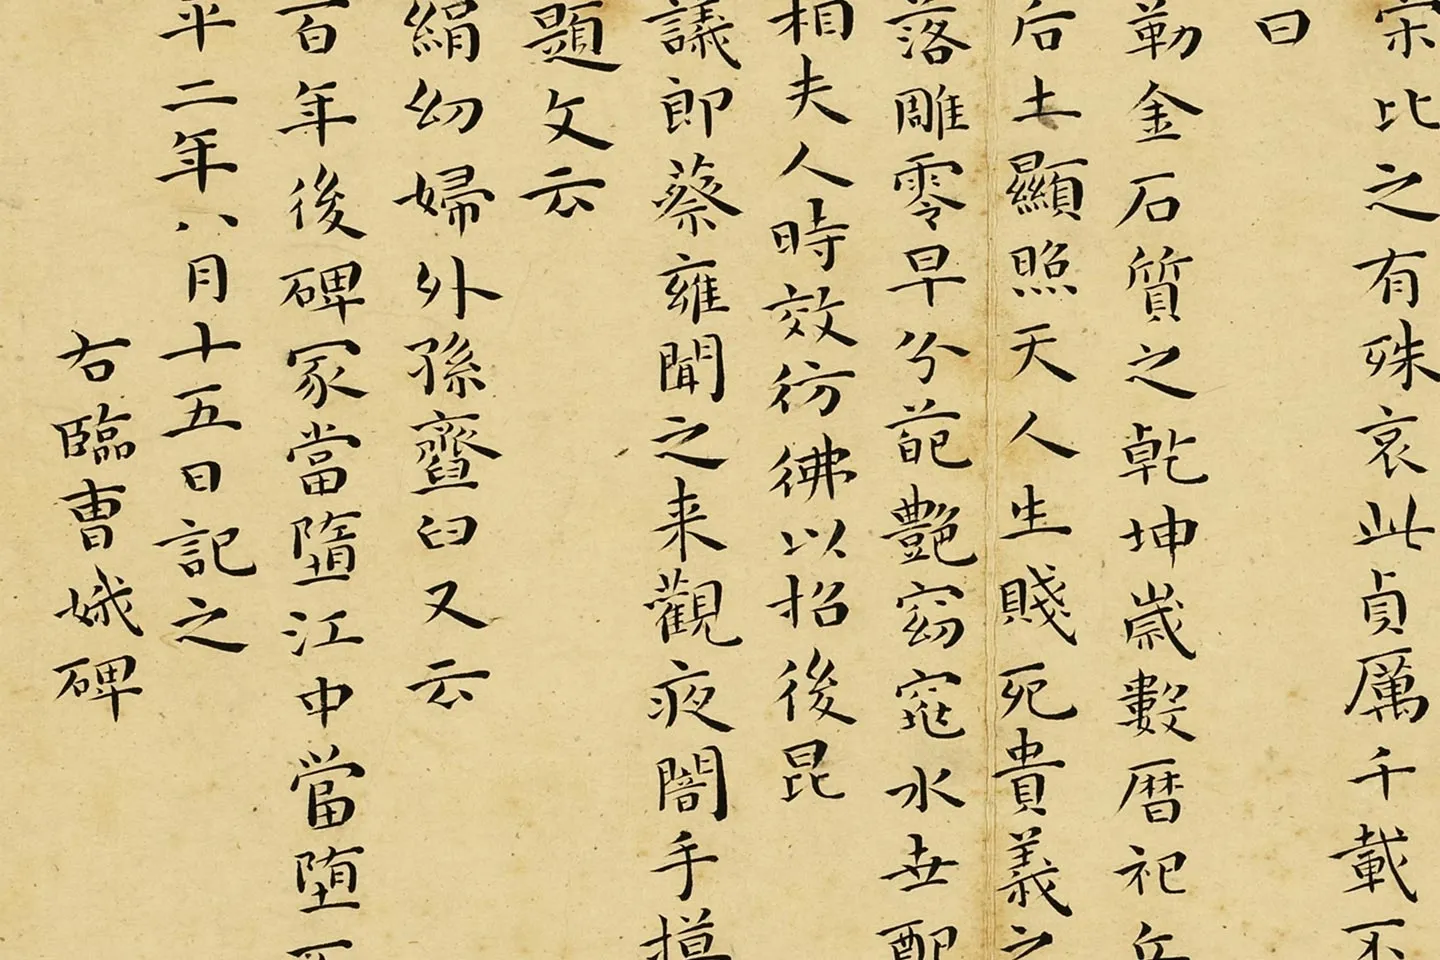 宋比之有殊哀此貞厲千載不
曰
勒金石質之乾坤歲數曆祀丘
后土顯照天人生賤死貴義之
落雕零早兮葩艷窈窕水世配
相夫人時效彷彿以招後昆
議郎蔡雍聞之来觀夜闇手摸
題文云
絹幼婦外孫齏臼又云
百年後碑冢當墮江中當墮
平二年八月十五日記之
右臨曹娥碑